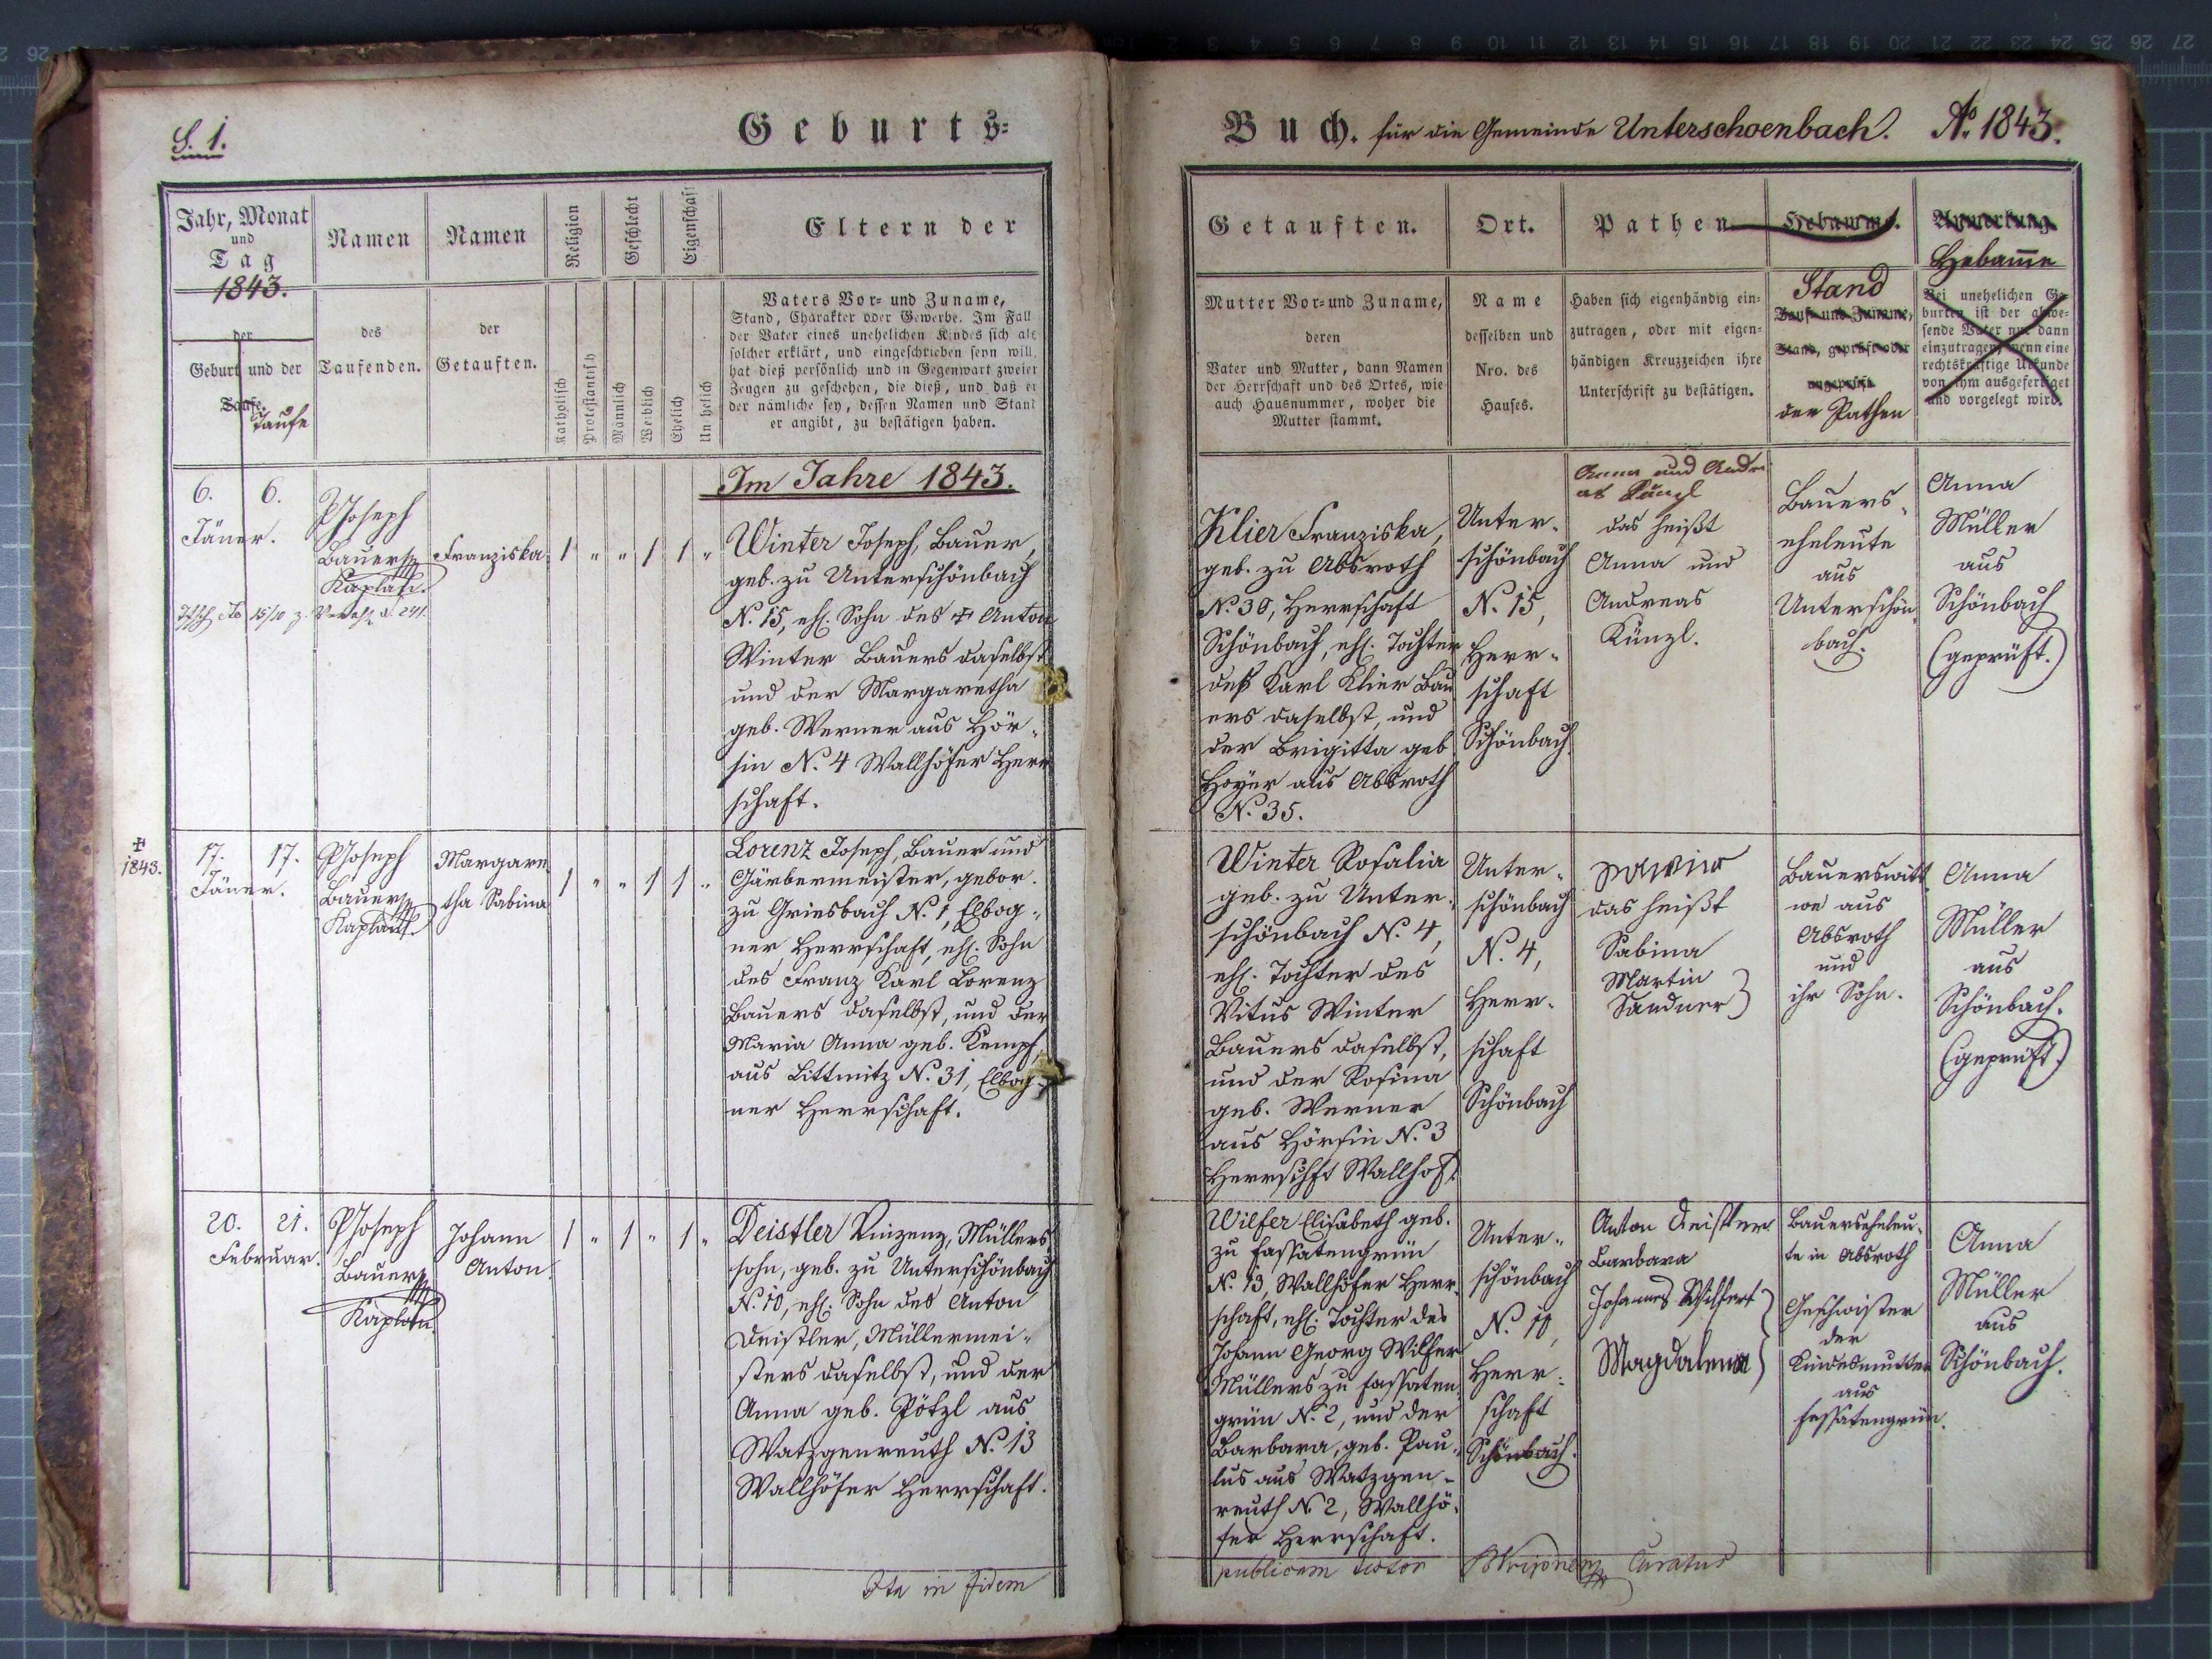 S. 1.
Geburts=
Jahr, Monat
und
Tag
1843.
der
Geburt und der
Taufe.
Taufe
Namen
des
Taufenden.
Namen
der
Getauften.
Religion
Katholisch
Protestantisch
Geschlecht
Männlich
Weiblich
Eigenschaft
Ehelich
Unehelich
Eltern der
Vaters Vor= und Zuname,
Stand, Charakter oder Gewerbe. Im Fall
der Vater eines unehelichen Kindes sich als
solcher erklärt, und eingeschrieben seyn will,
hat dieß persönlich und in Gegenwart zweier
Zeugen zu geschehen, die dieß, und daß er
der nämliche sey, dessen Namen und Stand
er angibt, zu bestätigen haben.
Im Jahre 1843.
6. 6.
Jäner.
PJoseph
Bauer
Kaplan.
Franziska
1 " " 1 1 "
Winter Joseph, Bauer,
geb. zu Unterschönbach
N. 15, ehl. Sohn des ✝ Anton
Winter Bauers daselbst
und der Margaretha
geb. Werner aus Hör-
sin N. 4 Wallhöfer Herr
schaft.
✝
1843.
17. 17.
Jäner.
PJoseph
Bauer
Kaplan.
Margare
tha Sabina
1 " " 1 1 "
Lorenz Joseph, Bauer und
Gärbermeister, gebor.
zu Griesbach N. 1, Elbog-
ner Herrschaft, ehl. Sohn
des Franz Karl Lorenz
Bauers daselbst, und der
Maria Anna geb. Kempf,
aus Littmitz N. 31, Elbog-
ner Herrschaft.
20. 21.
Februar.
PJoseph
Bauer
Kaplan.
Johann
Anton.
1 " 1 " 1 "
Deistler Vinzenz, Müllers
sohn, geb. zu Unterschönbach
N. 10, ehl. Sohn des Anton
Deistler, Müllermei-
sters daselbst, und der
Anna geb. Pötzl aus
Watzgenreuth N. 13
Wallhöfer Herrschaft.
Ita in fidem
Buch. für die Gemeinde Unterschoenbach. Ao. 1843.
Getauften.
Mutter Vor= und Zuname,
deren
Vater und Mutter, dann Namen
der Herrschaft und des Ortes, wie
auch Hausnummer, woher die
Mutter stammt.
Ort.
Name
desselben und
Nro. des
Hauses.
Pathen
Haben sich eigenhändig ein=
zutragen, oder mit eigen=
händigen Kreuzzeichen ihre
Unterschrift zu bestätigen.
Hebamme.
Stand
Tauf= und Zuname,
Stand, geprüft oder
ungeprüft.
der Pathen
Anmerkung.
Hebam̄e
Bei unehelichen Ge=
burten ist der abwe=
sende Vater nur dann
einzutragen, wenn eine
rechtskräftige Urkunde
von ihm ausgefertiget
und vorgelegt wird.
Klier Franziska,
geb. zu Absroth
N. 30, Herrschaft
Schönbach, ehl. Tochter
deß Karl Klier Bau
ers daselbst, und
der Brigitta geb
Hoyer aus Absroth
N. 35.
Unter-
schönbach
N. 15,
Herr-
schaft
Schönbach.
Anna und Andre
as Künzl
das heißt
Anna und
Andreas
Künzl.
Bauers-
eheleute
aus
Unterschön
bach.
Anna
Müller
aus
Schönbach
(geprüft.)
Winter Rosalia
geb. zu Unter-
schönbach N. 4,
ehl. Tochter des
Vitus Winter
Bauers daselbst,
und der Rosina
geb. Werner
aus Hörsin N. 3
Herrschft Wallhof.
Unter-
schönbach
N. 4,
Herr-
schaft
Schönbach
das heißt
Sabina
Martin
Sandner
Bauerswitt
we aus
Absroth
und
ihr Sohn.
Anna
Müller
aus
Schönbach.
(geprüft)
Wilfer Elisabeth geb.
zu Fassatengrün
N. 13, Wallhöfer Herr
schaft, ehl. Tochter des
Johann Georg Wilfer
Müllers zu Fassaten
grün N. 2, und der
Barbara, geb. Pau-
lus aus Watzgen-
reuth N. 2, Wallhö-
fer Herrschaft.
Unter-
schönbach
N.
Herr-
schaft
Schönbach.
Anton Deistler
Barbara
Johannes Wilfert
Magdalena
Bauerseheleu-
te in Absroth
Geschwister
der
Kindesmutter
aus
Fassatengrün.
Anna
Müller
aus
Schönbach.
publicam Curatus